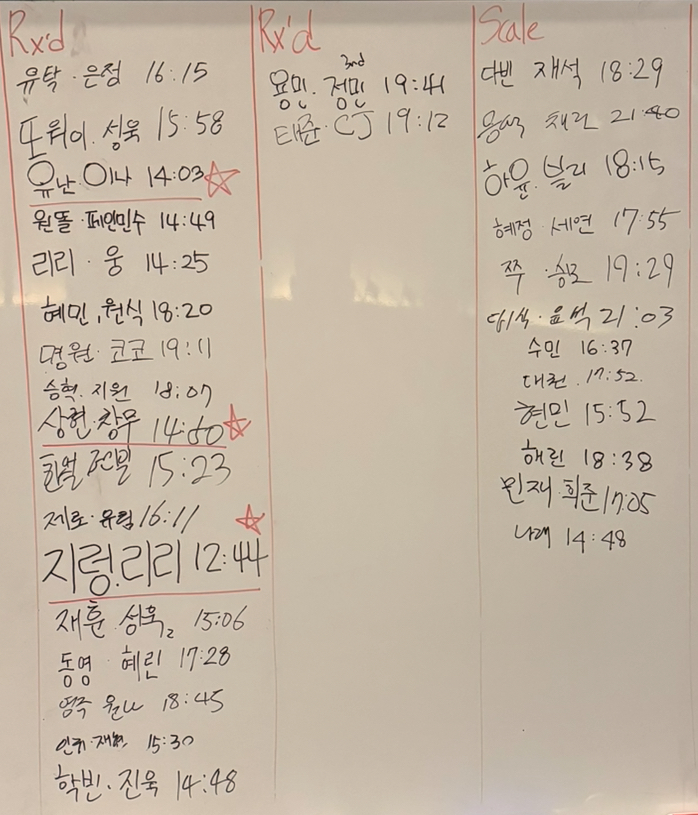 Rx'd
유탁·은정 16:15
또위이·성욱 15:58
유난·이나 14:03
원똘·페인민수 14:49
리리·웅 14:25
혜민,원식 18:20
명원·코코 19:11
승혁·지원 18:07
상현·창무
15:23
제로·유림 16:11
지렁.리리 12:44
재훈 성욱2 15:06
동영 혜린 17:28
영주 18:45
15:30
학빈·진욱 14:48
Rx'd
3rd
용민·정민 19:41
태준·CJ 19:12
Scale
다빈 재석 18:29
채린 21:40
하윤·블리 18:15
혜정·세연 17:55
쭈·승호 19:29
윤석 21:03
수민 16:37
대천·17:52
현민 15:52
해린 18:38
민재·희준 17:05
나래 14:48